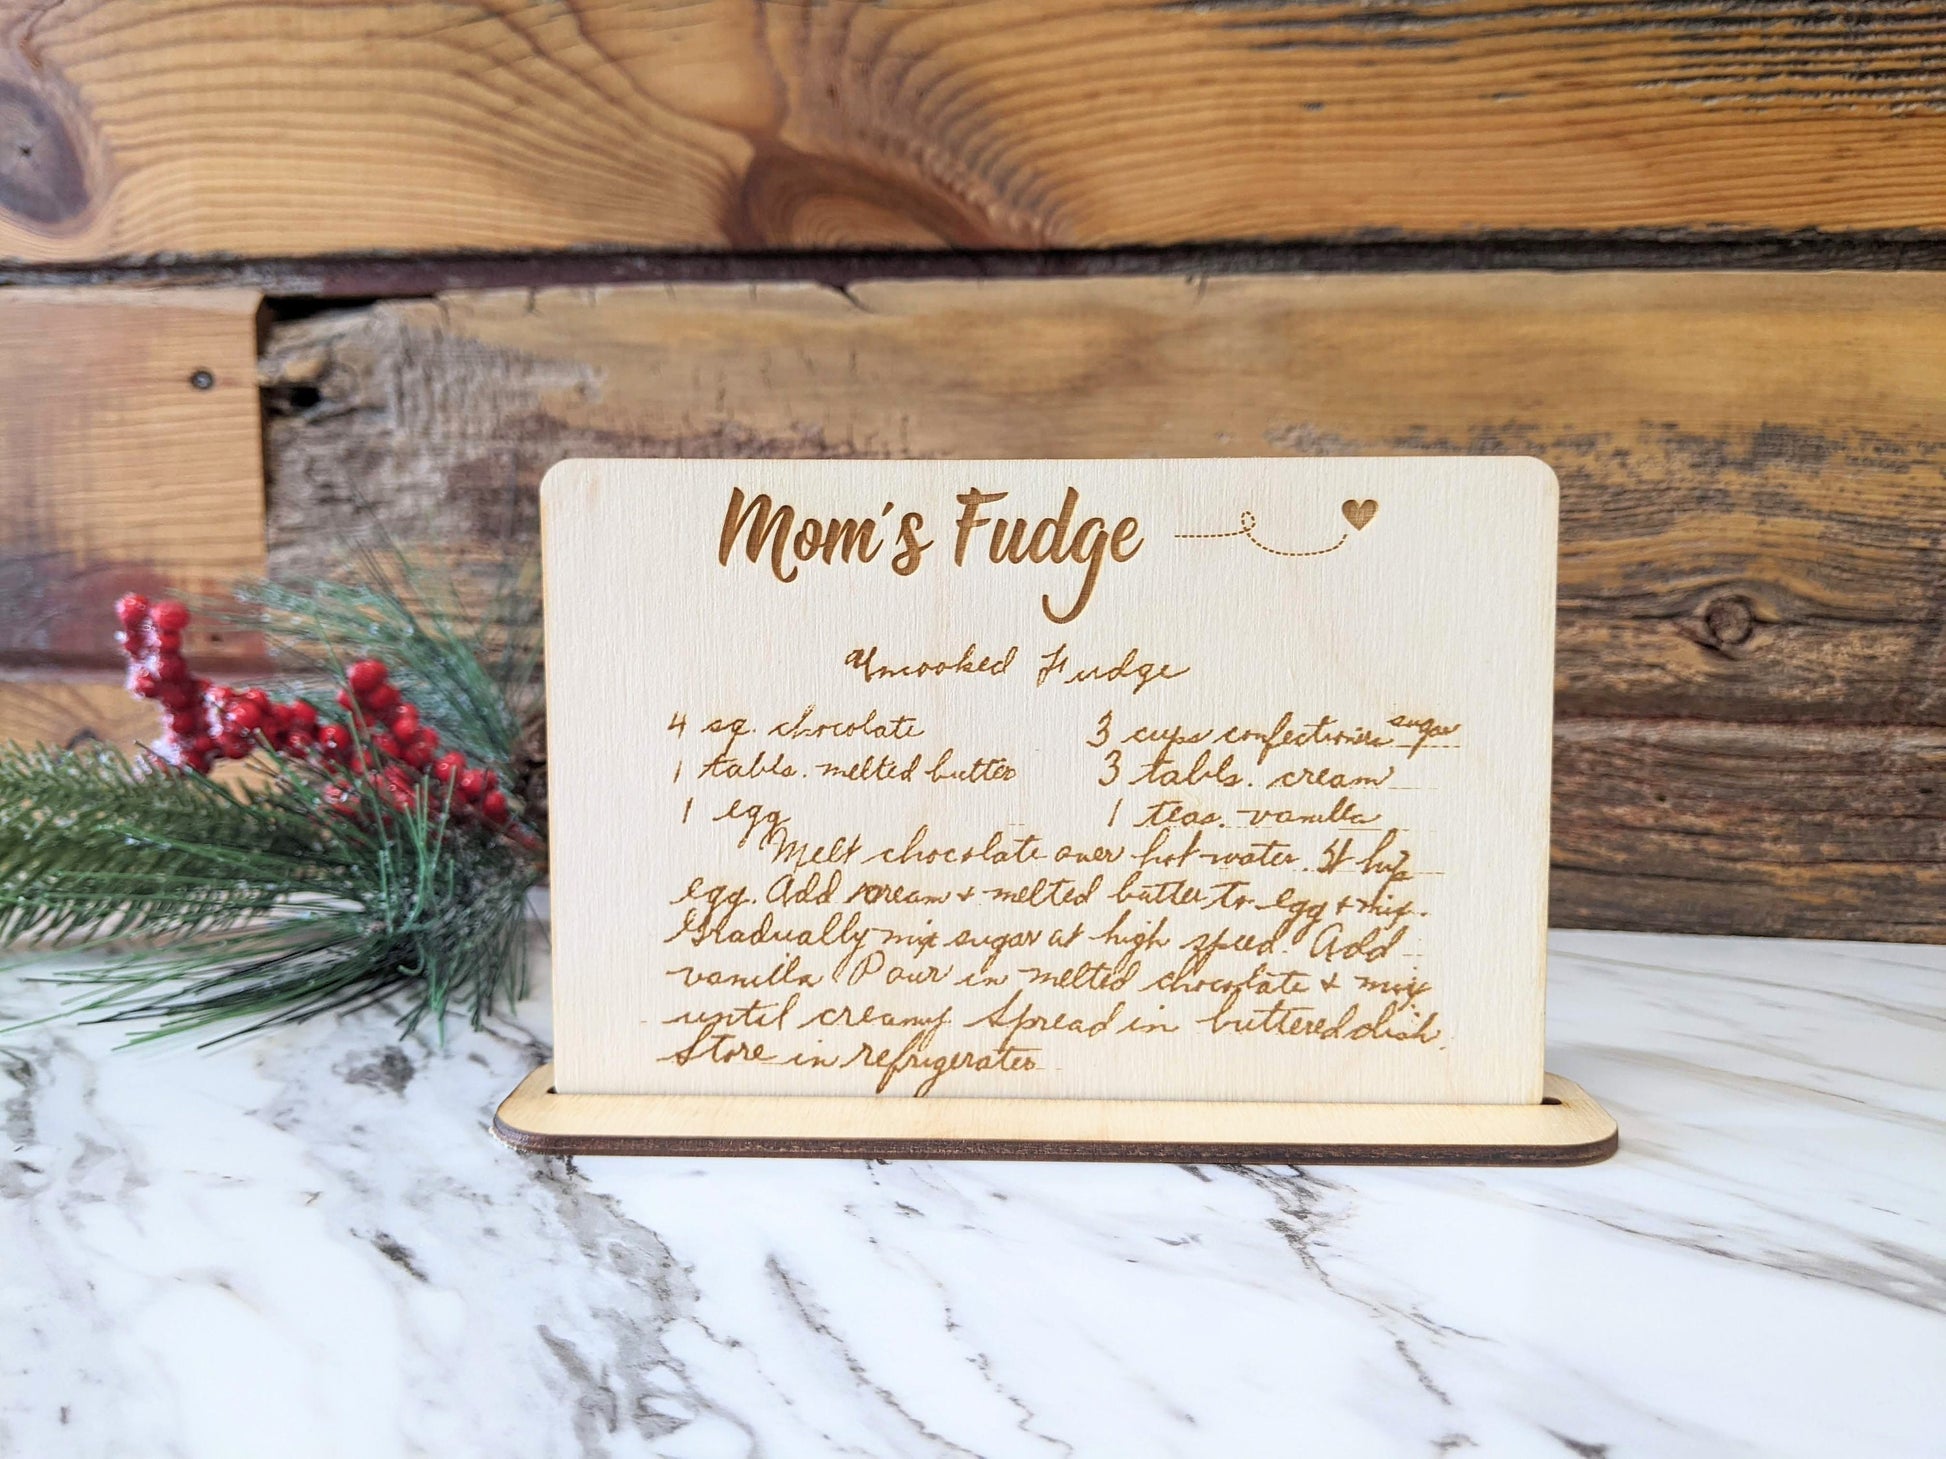 Mom's Fudge
Uncooked Fudge
4 sq. chocolate 3 cups confectioners sugar
1 tabls. melted butter 3 tabls. cream
1 egg 1 teas. vanilla
Melt chocolate over hot water.
egg. Add cream + melted butter to egg + mix.
Gradually mix sugar at high speed. Add
vanilla Pour in melted chocolate + mix
until creamy Spread in buttered dish.
Store in refrigerator